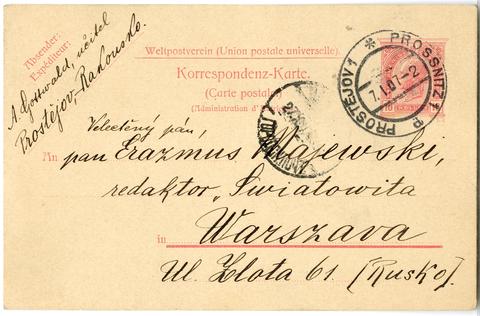 Absender:
Expéditeur:
A. Gottwald, učitel
Prostějov-Rakousko.
Weltpostverein (Union postale universelle).
Korrespondenz-Karte.
(Carte postale
(Administration d'
PROSSNITZ 1
PROSTĚJOV 1
7.1.07-2
Velectěný pán,
An pan Erazmus Majewski,
redaktor „Światowita
in Warszava
Ul. Zlota 61. [Rusko].